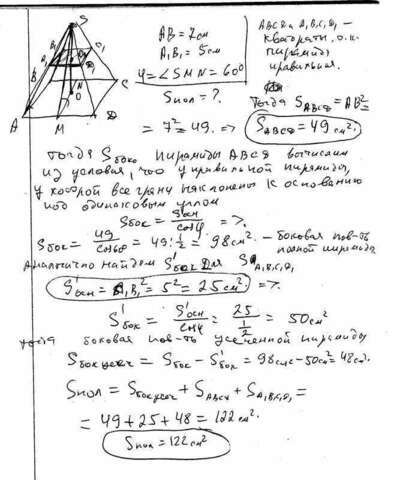 S
AB = 7см
A₁B₁ = 5см
φ = ∠SMN = 60°
Sпол = ?
ABCD и A₁B₁C₁D₁ –
квадраты, т.к.
пирамида
правильная.
Тогда S ABCD = AB² =
= 7² = 49. => S ABCD = 49 см²
B₁ C₁ D₁
B C
O
A M D
Тогда Sбок. пирамиды ABCD вычислим
из условия, что у правильной пирамиды,
у которой все грани наклонены к основанию
под одинаковым углом
Sбок = Sосн/cosφ =>
Sбок = 49/cos60 = 49 : 1/2 = 98см². – боковая пов-ть
полной пирамиды
Аналогично найдем S'бок для S A₁B₁C₁D₁
S'осн = A₁B₁² = 5² = 25см² =>
S'бок = S'осн/cosφ = 25/(1/2) = 50см²
тогда боковая пов-ть усеченной пирамиды
Sбок усеч = Sбок – S'бок = 98см² – 50см² = 48см².
Sпол = Sбок усеч + S ABCD + S A₁B₁C₁D₁ =
= 49 + 25 + 48 = 122см².
Sпол = 122см²